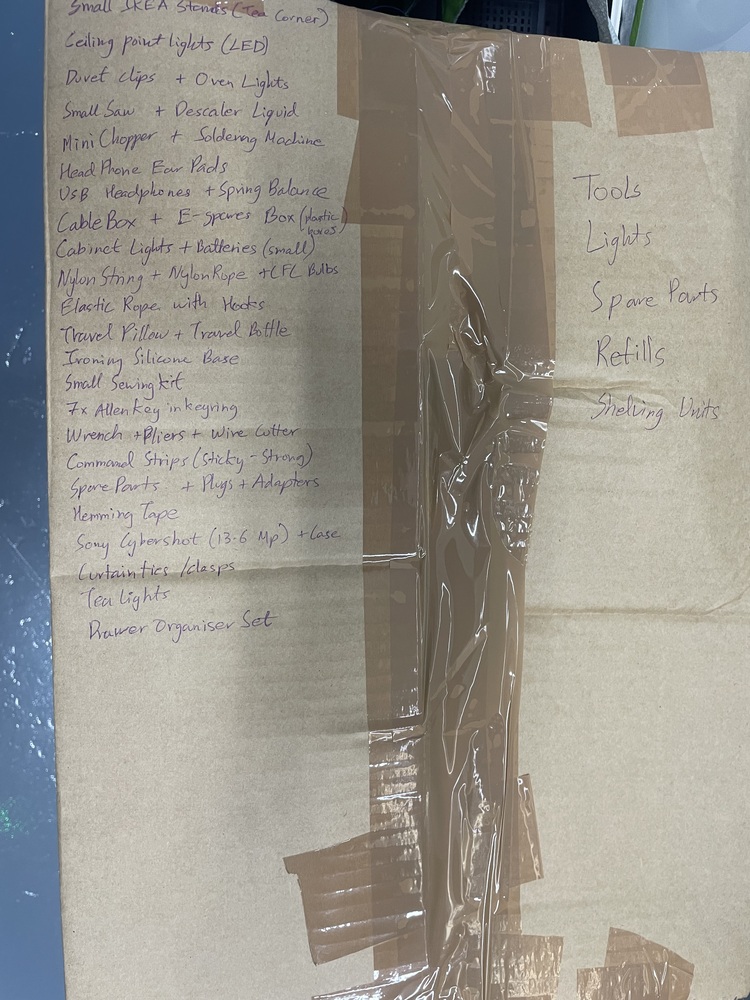 Small IKEA Stands (Tea Corner)
Ceiling point lights (LED)
Duvet clips + Oven Lights
Small Saw + Descaler Liquid
Mini Chopper + Soldering Machine
Head Phone Ear Pads
USB Headphones + Spring Balance
Cable Box + E-spares Box (plastic boxes)
Cabinet Lights + Batteries (small)
Nylon String + Nylon Rope + CFL Bulbs
Elastic Rope with Hooks
Travel Pillow + Travel Bottle
Ironing Silicone Base
Small Sewing kit
7x Allen key in keyring
Wrench + Pliers + Wire Cutter
Command Strips (Sticky - Strong)
Spare Parts + Plugs + Adapters
Hemming Tape
Sony Cybershot (13.6 Mp) + Case
Curtain ties / clasps
Tea Lights
Drawer Organiser Set
Tools
Lights
Spare Parts
Refills
Shelving Units